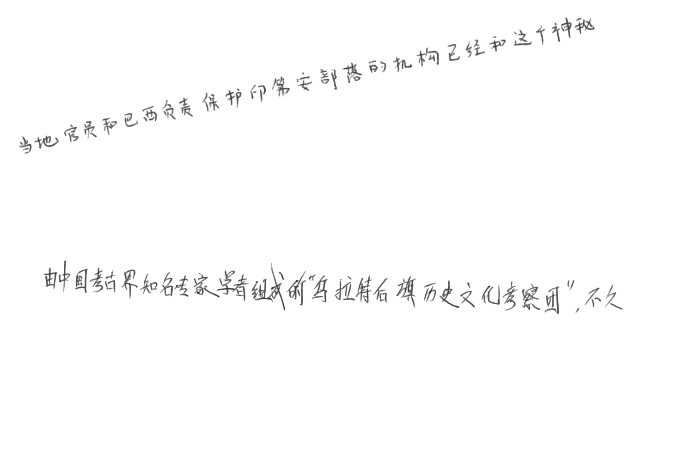 当地官员和巴西负责保护印第安部落的机构已经和这个神秘
由中国考古界知名专家学者组成的“乌拉特后旗历史文化考察团”,不久